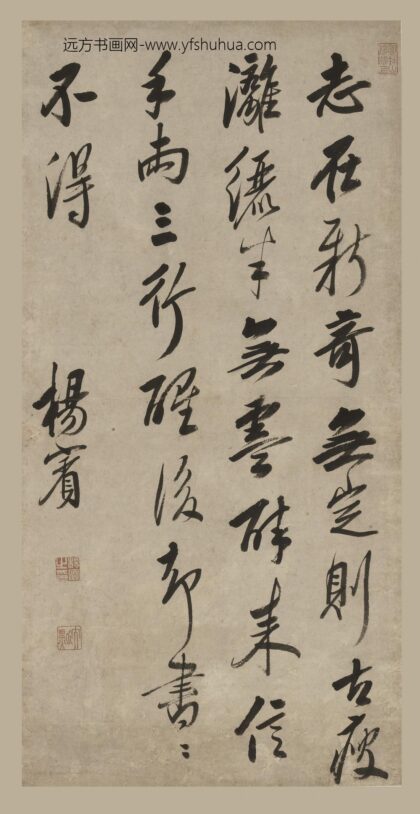 远方书画网-www.yfshuhua.com
志在新奇無定則古瘦
灕纚半無墨醉来信
手兩三行醒後却書〻
不得
楊賓